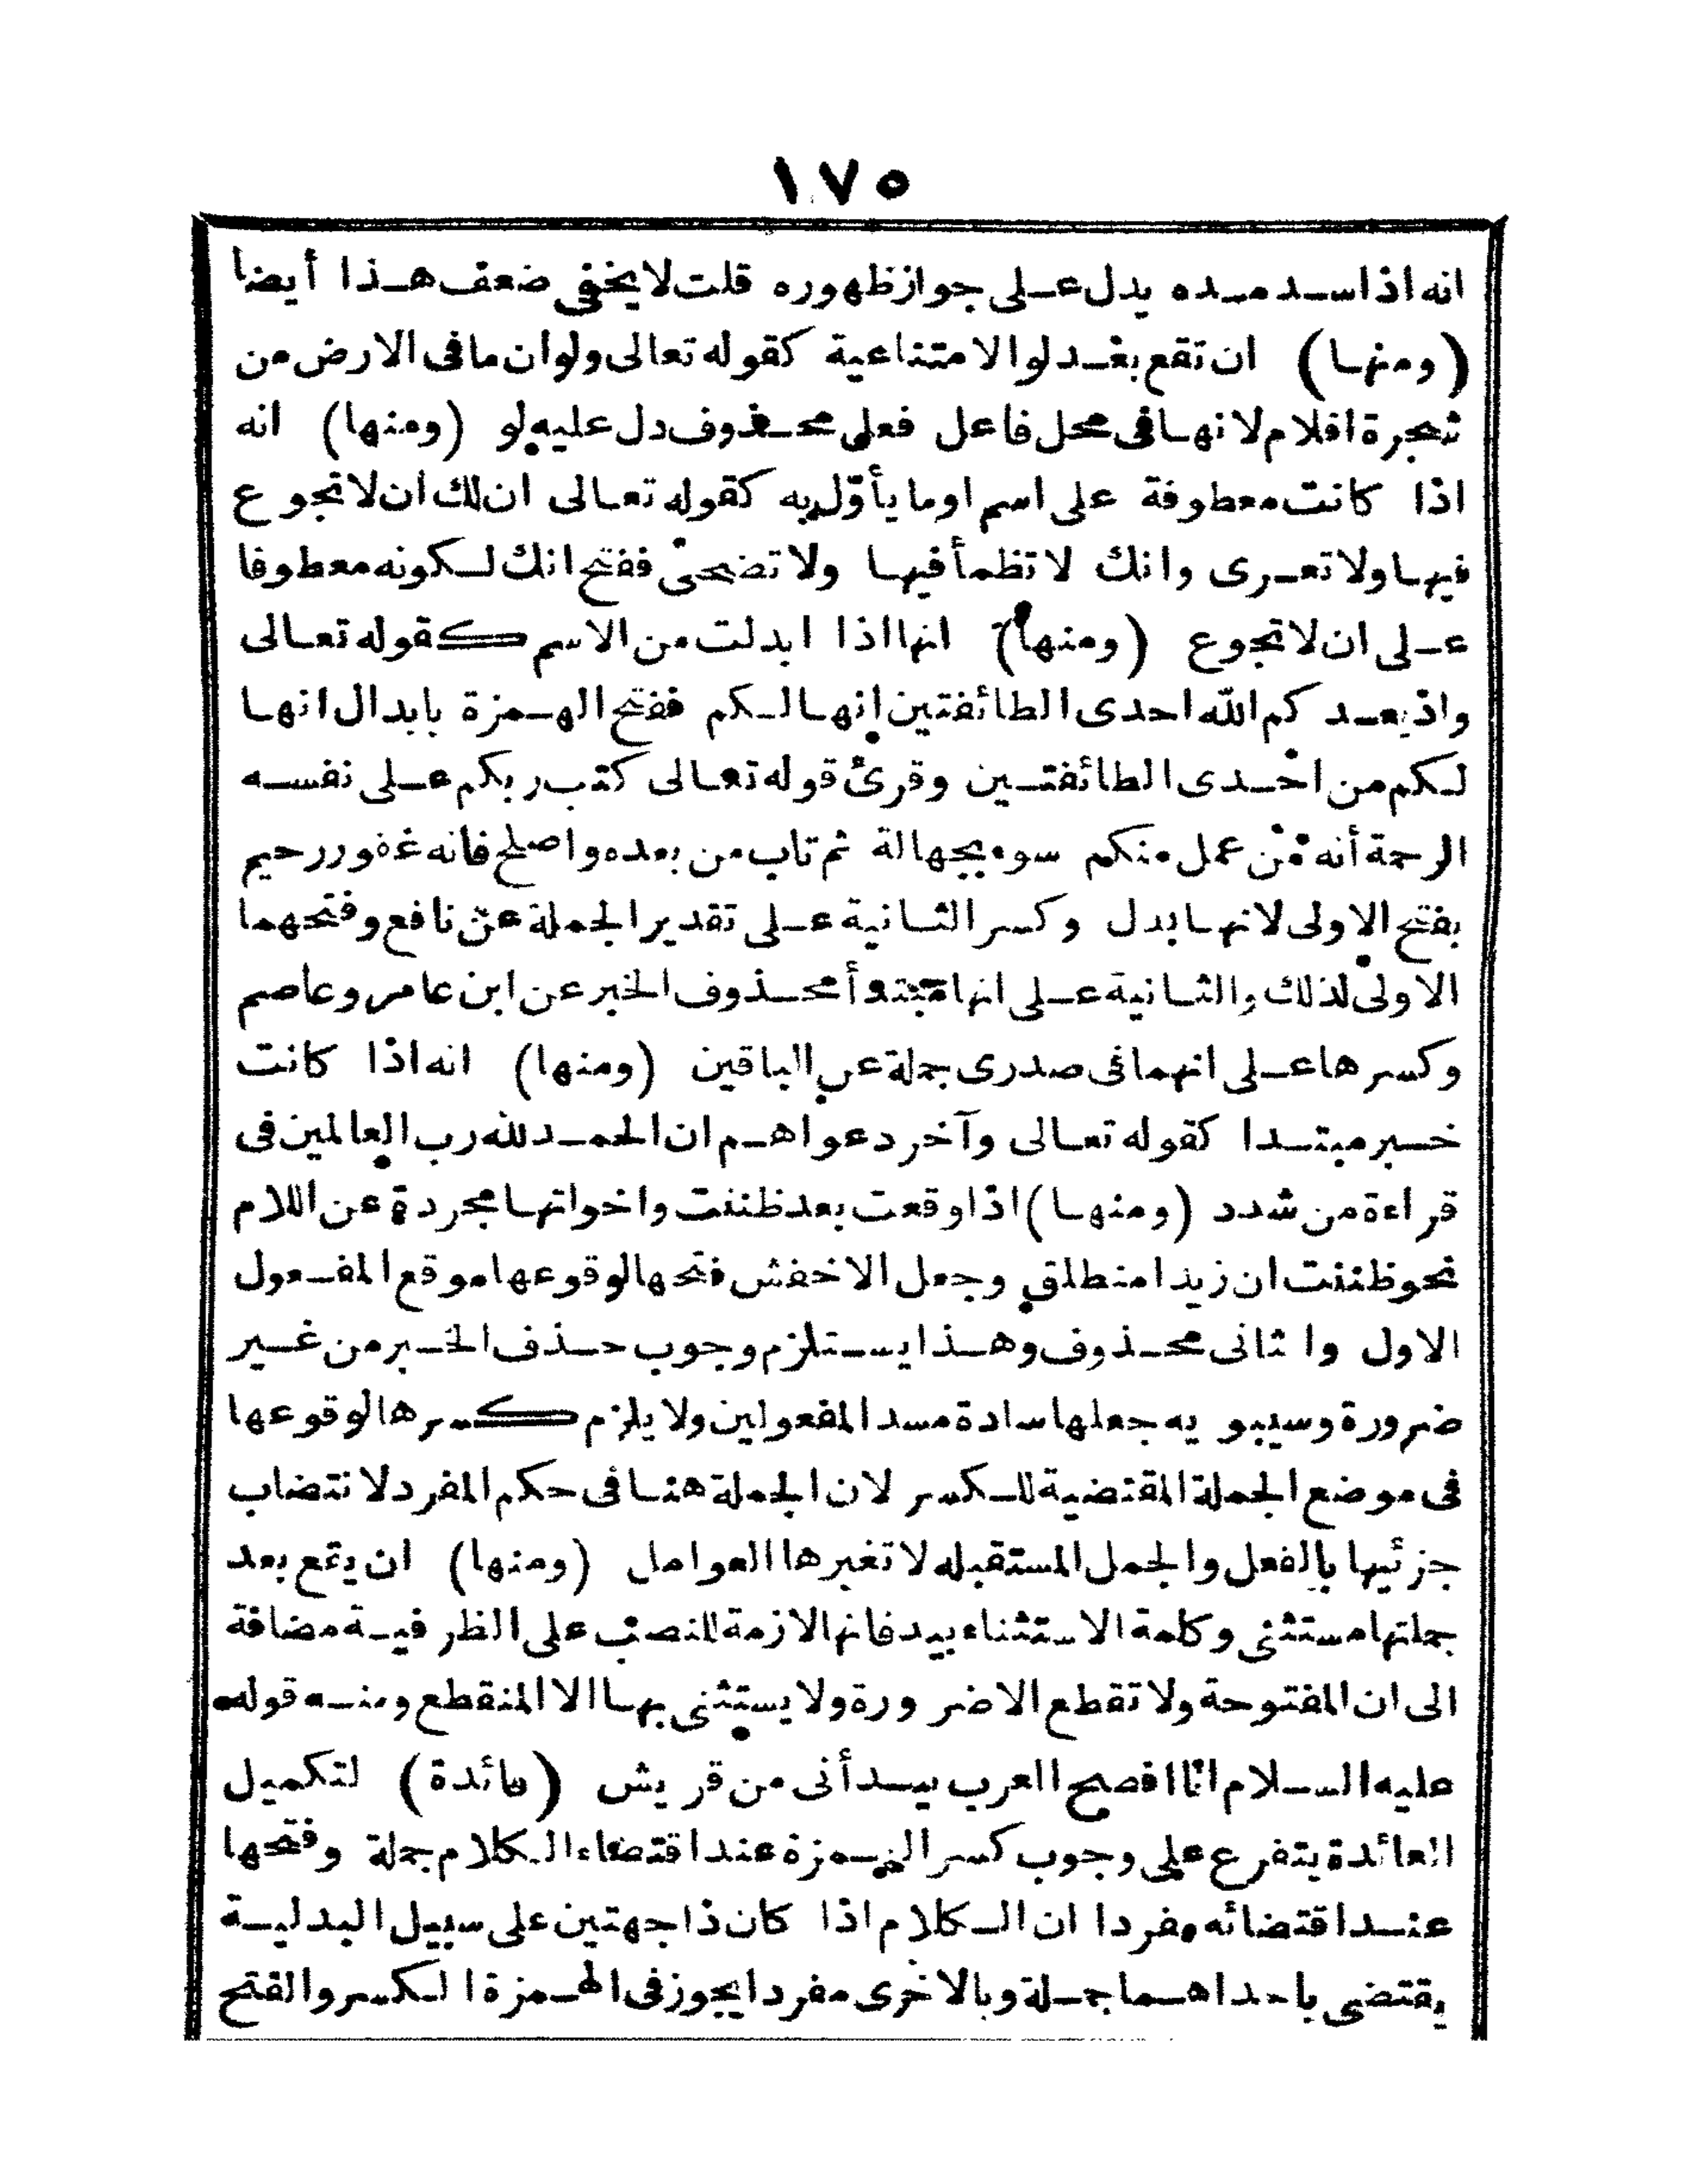 ١٧٥
انه اذا سد مسده يدل على جواز ظهوره قلت لا يخفى ضعف هذا أيضا
(ومنها) ان تقع بعد لو الامتناعية كقوله تعالى ولو ان ما فى الارض من
شجرة اقلام لانها فى محل فاعل فعل محذوف دل عليه لو (ومنها) انه
اذا كانت معطوفة على اسم او ما يأوّل به كقوله تعالى ان لك ان لا تجوع
فيها ولا تعرى وانك لا تظمأ فيها ولا تضحى ففتح انك لكونه معطوفا
على ان لا تجوع (ومنها) انها اذا ابدلت من الاسم كقوله تعالى
واذ يعدكم الله احدى الطائفتين انها لكم ففتح الهمزة بابدال انها
لكم من احدى الطائفتين وقرئ قوله تعالى كتب ربكم على نفسه
الرحمة أنه من عمل منكم سوء بجهالة ثم تاب من بعده واصلح فانه غفور رحيم
بفتح الاولى لانها بدل وكسر الثانية على تقدير الجملة عن نافع وفتحهما
الاولى لذلك والثانية على انها مبتدأ محذوف الخبر عن ابن عامر وعاصم
وكسرها على انهما فى صدرى جملة عن الباقين (ومنها) انه اذا كانت
خبر مبتدا كقوله تعالى وآخر دعواهم ان الحمد لله رب العالمين فى
قراءة من شدد (ومنها) اذا وقعت بعد ظننت واخواتها مجردة عن اللام
نحو ظننت ان زيدا منطلق وجعل الاخفش فتحها لوقوعها موقع المفعول
الاول وا ثانى محذوف وهذا يستلزم وجوب حذف الخبر من غير
ضرورة وسيبويه جعلها سادة مسد المفعولين ولا يلزم كسرها لوقوعها
فى موضع الجملة المقتضية للكسر لان الجملة هنا فى حكم المفرد لانتضاب
جزئيها بالفعل والجمل المستقبله لا تغيرها العوامل (ومنها) ان يقع بعد
جملتها مستثنى وكلمة الاستثناء بيد فانها لازمة للنصب على الظرفية مضافة
الى ان المفتوحة ولا تقطع الا ضرورة ولا يستثنى بها الا المنقطع ومنه قوله
عليه السلام انا افصح العرب بيد أنى من قريش (فائدة) لتكميل
العائدة يتفرع على وجوب كسر الهمزة عند اقتضاء الكلام جملة وفتحها
عند اقتضائه مفردا ان الكلام اذا كان ذا جهتين على سبيل البدلية
يقتضى باحداهما جملة وبالاخرى مفردا يجوز فى الهمزة الكسر والفتح